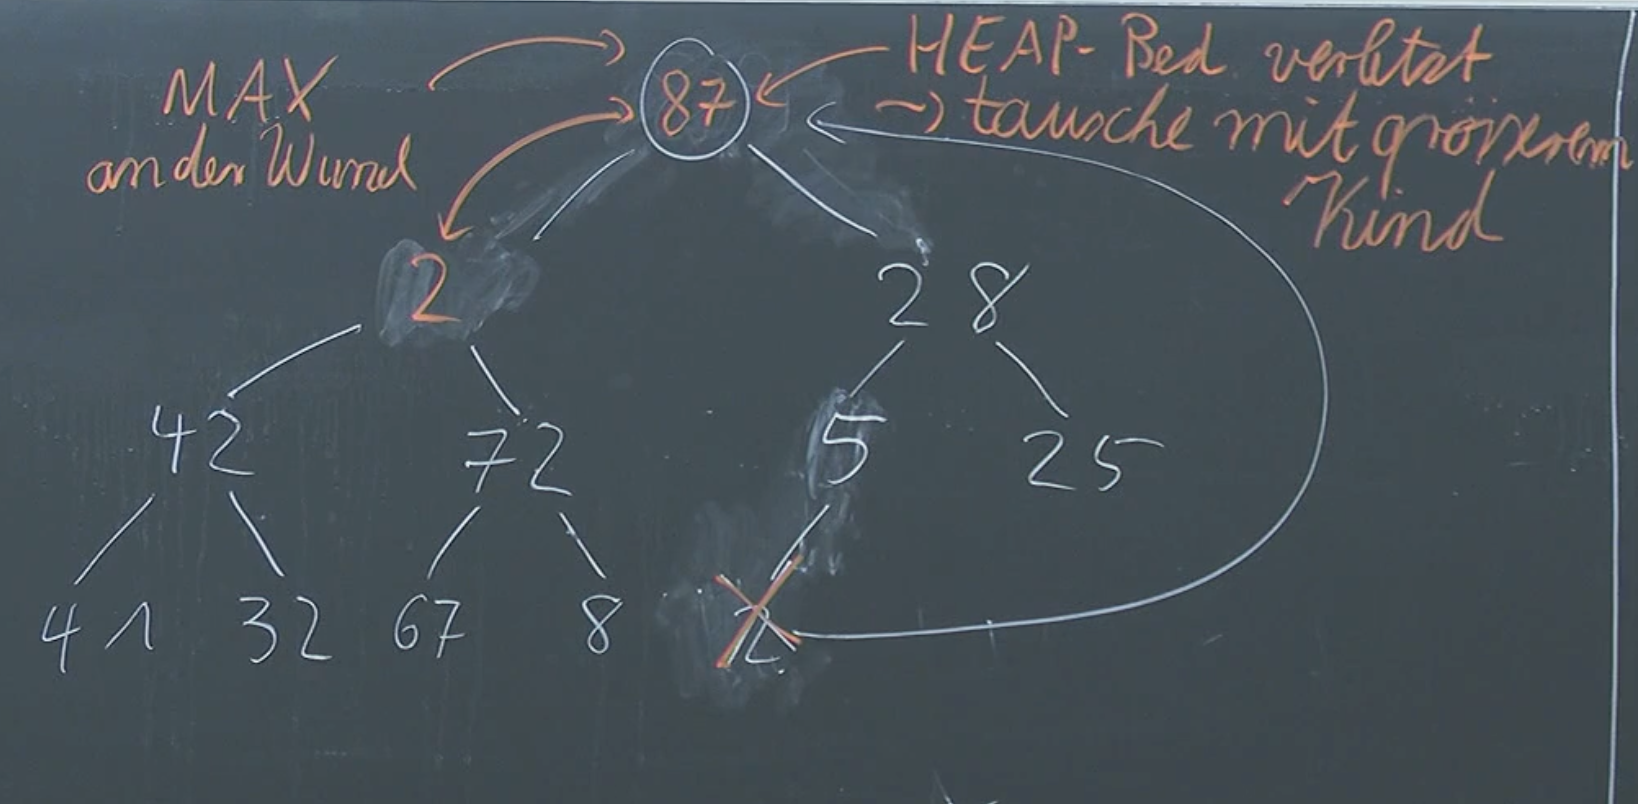 MAX
an der Wurzel
87
HEAP-Bed. verletzt
→ tausche mit grösserem
Kind
2
28
42
72
5
25
41
32
67
8
2